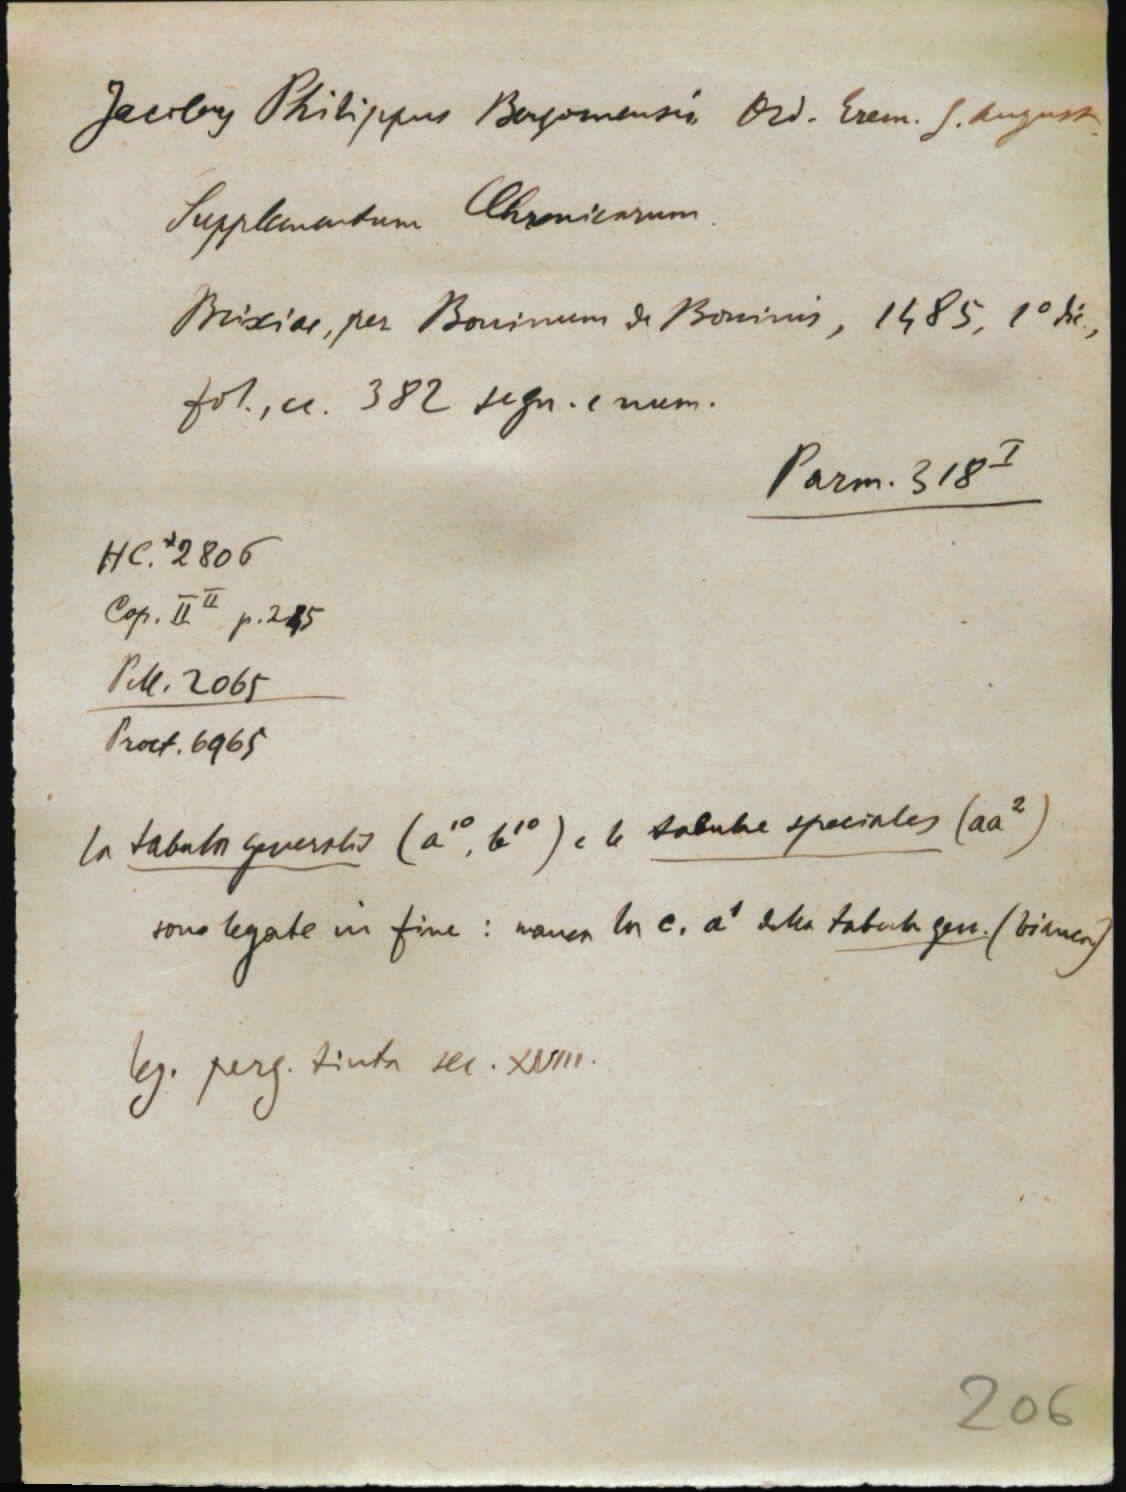 Jacobus Philippus Bergomensis Ord. Erem. S. August.
Supplementum Chronicarum.
Brixiae, per Boninum de Boninis, 1485, 1° dic.,
fol., cc. 382 segn. e num.
Parm. 318 I
HC. *2806
Cop. II II p. 245
Pell. 2065
Proct. 6965
la tabula generalis (a10, b10) e le tabulae speciales (aa2)
sono legate in fine: manca la c. a1 della tabula gen. (bianca)
leg. perg. tinta sec. XVIII.
206